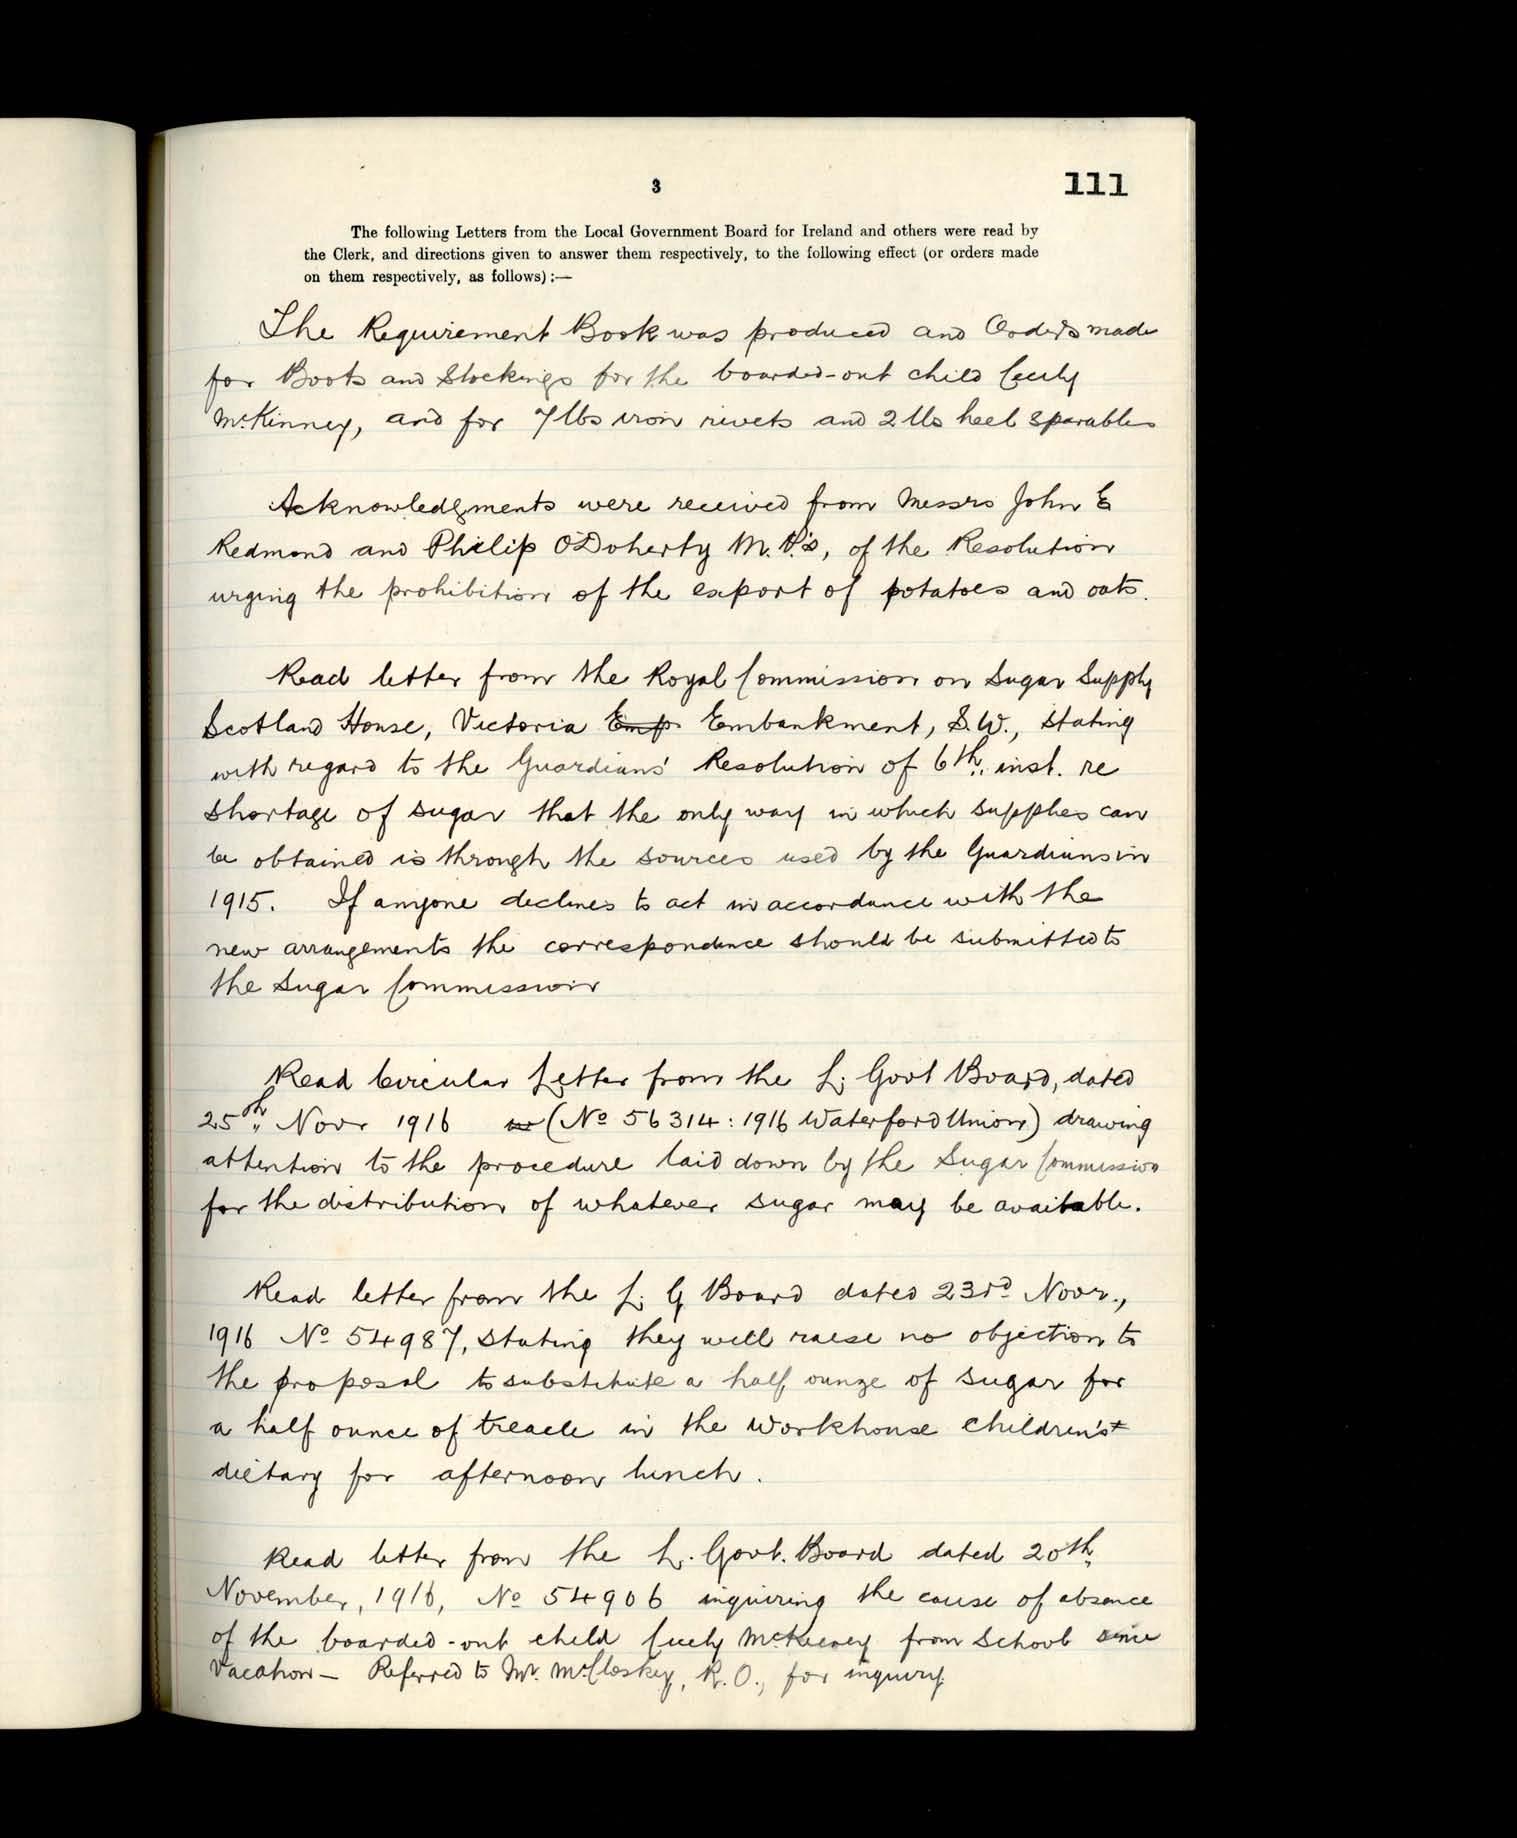 3
111
The following Letters from the Local Government Board for Ireland and others were read by
the Clerk, and directions given to answer them respectively, to the following effect (or orders made
on them respectively, as follows) :—
The Requirement Book was produced and Orders made
for Boots and Stockings for the boarded-out child Cecily
McKinney, and for 7 lbs iron rivets and 2 lbs heel sparables
Acknowledgments were received from Messrs John E
Redmond and Philip O'Doherty M.P.'s, of the Resolution
urging the prohibition of the export of potatoes and oats.
Read letter from the Royal Commission on Sugar Supply
Scotland House, Victoria Emp Embankment, S.W., stating
with regard to the Guardians' Resolution of 6th inst. re
shortage of sugar that the only way in which supplies can
be obtained is through the sources used by the Guardians in
1915. If anyone declines to act in accordance with the
new arrangements the correspondence should be submitted to
the Sugar Commission
Read Circular Letter from the L. Govt Board, dated
25th Novr 1916 (No 56314: 1916 Waterford Union) drawing
attention to the procedure laid down by the Sugar Commission
for the distribution of whatever sugar may be available.
Read letter from the L. G Board dated 23rd Novr.,
1916 No 54987, stating they will raise no objection to
the proposal to substitute a half ounze of sugar for
a half ounce of treacle in the workhouse children's
dietary for afternoon lunch.
Read letter from the L. Govt. Board dated 20th
November, 1916, No 54906 inquiring the cause of absence
of the boarded-out child Cecily from School since
Vacation — Referred to Mr. McCloskey, R.O., for inquiry